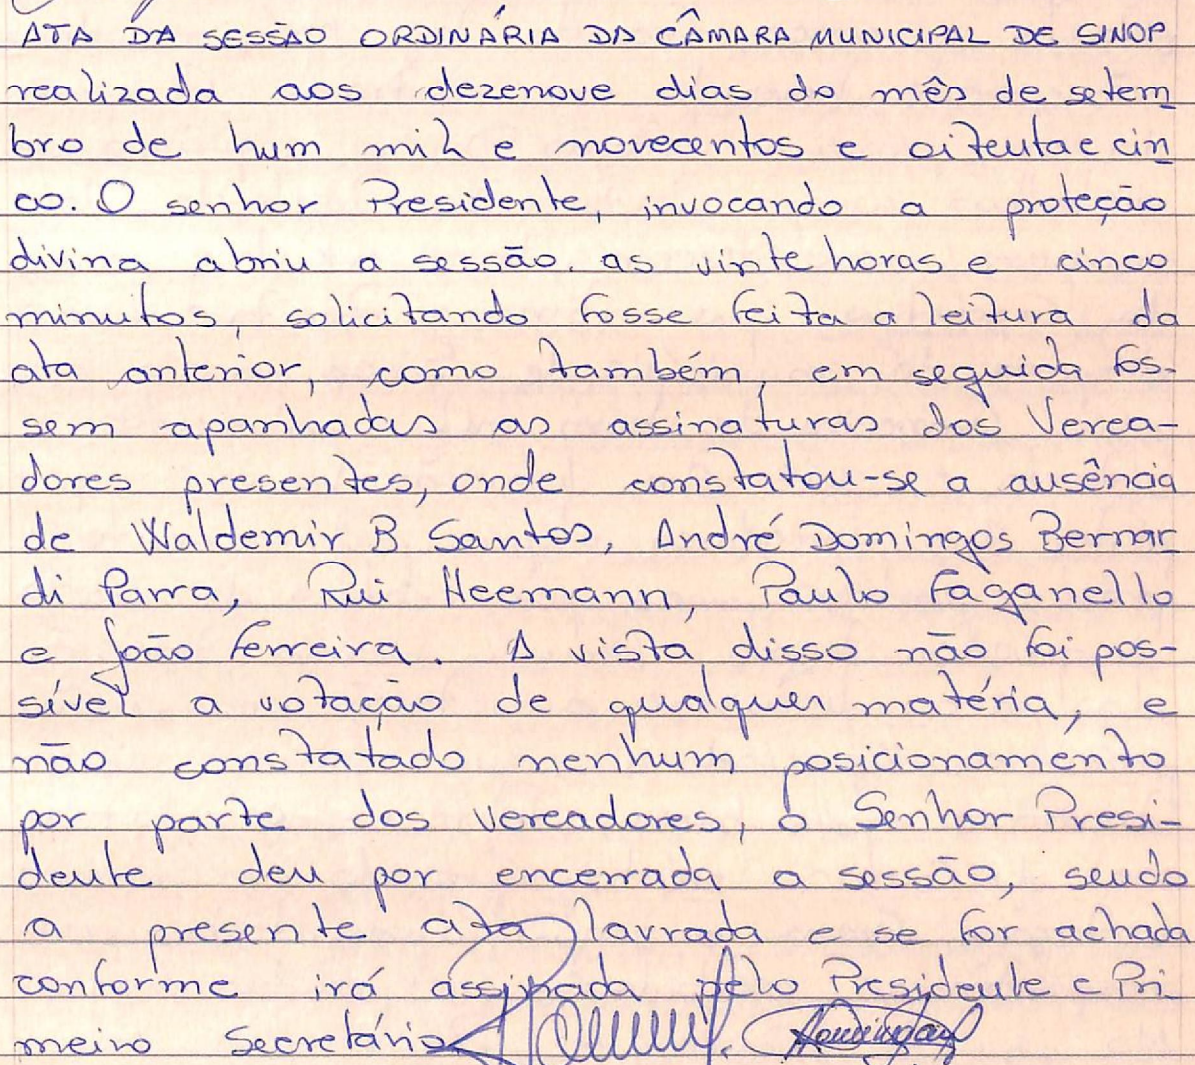 ATA DA SESSÃO ORDINÁRIA DA CÂMARA MUNICIPAL DE SINOP
realizada aos dezenove dias do mês de setem
bro de hum mil e novecentos e oitenta e cin
co. O senhor Presidente, invocando a proteção
divina abriu a sessão. as vinte horas e cinco
minutos, solicitando fosse feita a leitura da
ata anterior, como também, em seguida fos-
sem apanhadas as assinaturas dos Verea-
dores presentes, onde constatou-se a ausência
de Waldemir B Santos, André Domingos Bernar
di Parra, Rui Heemann, Paulo Faganello
e João Ferreira. A vista disso não foi pos-
sível a votação de qualquer matéria, e
não constatado nenhum posicionamento
por parte dos vereadores, o Senhor Presi-
dente deu por encerrada a sessão, sendo
a presente ata lavrada e se for achada
conforme irá assinada pelo Presidente e Pri
meiro Secretário